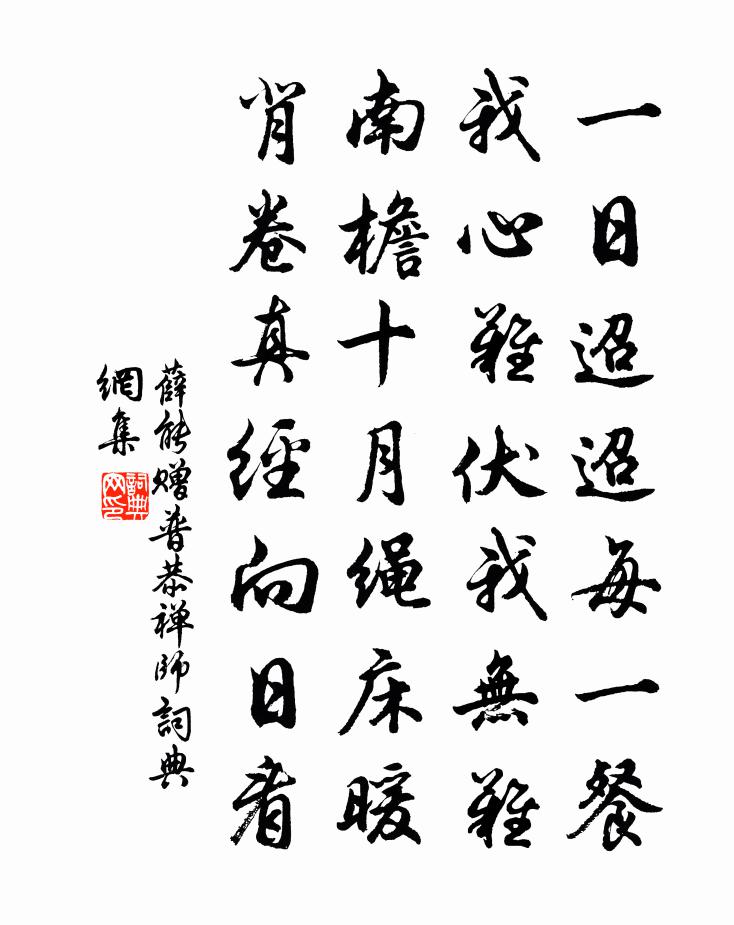 一日迢迢每一餐
我心難伏我無難
南檐十月绳床暖
背卷真經向日看
薛能赠普恭禅師詞典
網集
詞典网印